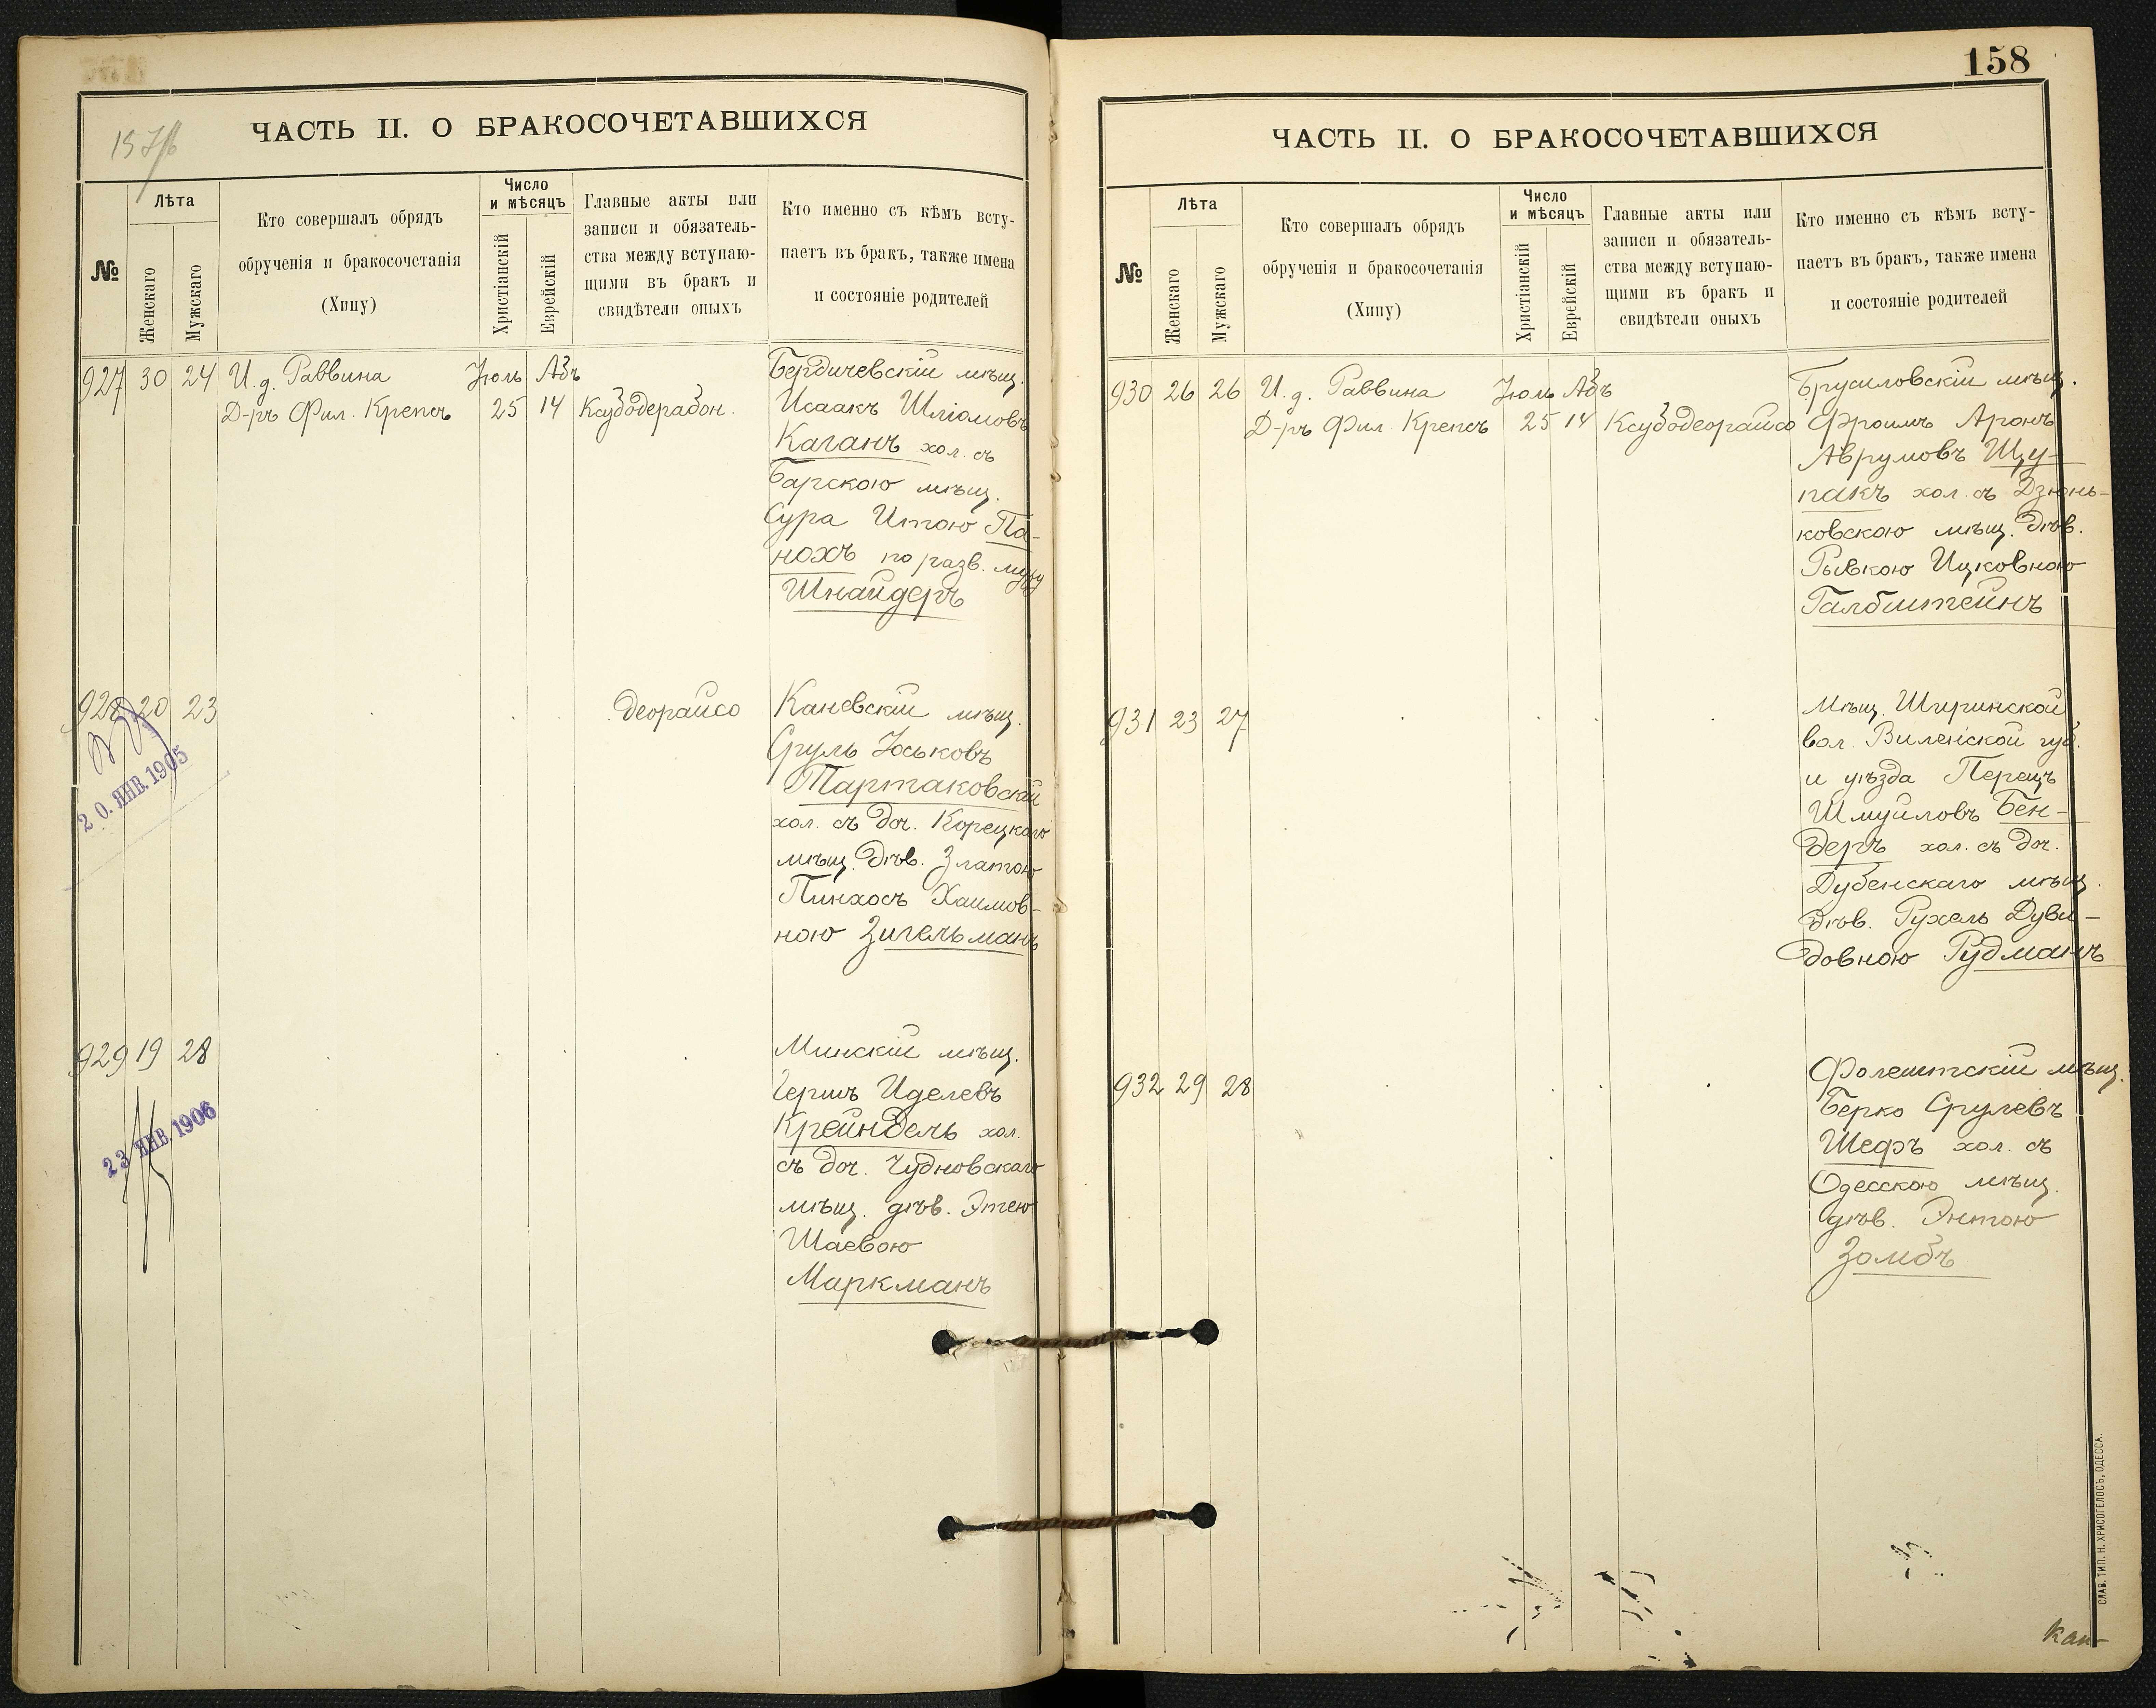 157/б
ЧАСТЬ II. О БРАКОСОЧЕТАВШИХСЯ
№
Лѣта
Женскаго
Мужскаго
Кто совершалъ обрядъ
обрученія и бракосочетанія
(Хипу)
Число
и мѣсяцъ
Христіанскій
Еврейскій
Главные акты или
записи и обязатель-
ства между вступаю-
щими въ бракъ и
свидѣтели оныхъ
Кто именно съ кѣмъ всту-
паетъ въ бракъ, также имена
и состояніе родителей
927 30 24 И. д. Раввина Іюль Абъ Бердичевскій мѣщ.
Д-ръ Фил. Крепсъ 25 14 Ксубодерабон. Исаакъ Шліомовъ
Каганъ хол. съ
Барскою мѣщ.
Сура Итою Па-
нохъ по разв. мужу
Шнайдеръ
928 20 23 деорайсо Каневскій мѣщ.
Сруль Юськовъ
Тартаковскій
хол. съ доч. Корецкаго
мѣщ. дѣв. Златою
Пинхосъ Хаимов-
ною Зигельманъ
20. ЯНВ. 1905
929 19 28 Минскій мѣщ.
Гершъ Иделевъ
Крейндель хол.
съ доч. Чудновскаго
мѣщ. дѣв. Этею
Шаевою
Маркманъ
23 ЯНВ. 1906
158
ЧАСТЬ II. О БРАКОСОЧЕТАВШИХСЯ
№
Лѣта
Женскаго
Мужскаго
Кто совершалъ обрядъ
обрученія и бракосочетанія
(Хипу)
Число
и мѣсяцъ
Христіанскій
Еврейскій
Главные акты или
записи и обязатель-
ства между вступаю-
щими въ бракъ и
свидѣтели оныхъ
Кто именно съ кѣмъ всту-
паетъ въ бракъ, также имена
и состояніе родителей
930 26 26 И. д. Раввина Іюль Абъ Брусиловскій мѣщ.
Д-ръ Фил. Крепсъ 25 14 Ксубодеорайсо Фроимъ Аронъ
Аврумовъ Щу-
пакъ хол. съ Дзюнь-
ковскою мѣщ. дѣв.
Рывкою Ицковною
Галбштейнъ
931 23 27 Мѣщ. Ширинской
вол. Виленской губ.
и уѣзда Перецъ
Шмуйловъ Бен-
деръ хол. съ доч.
Дубенскаго мѣщ.
дѣв. Рухель Дуви-
довною Гудманъ
932 29 28 Фолештскій мѣщ.
Берко Срулевъ
Шефъ хол. съ
Одесскою мѣщ.
дѣв. Энтою
Зомбъ
СЛАВ. ТИП. Н. ХРИСОГЕЛОСЪ, ОДЕССА.
Кан-